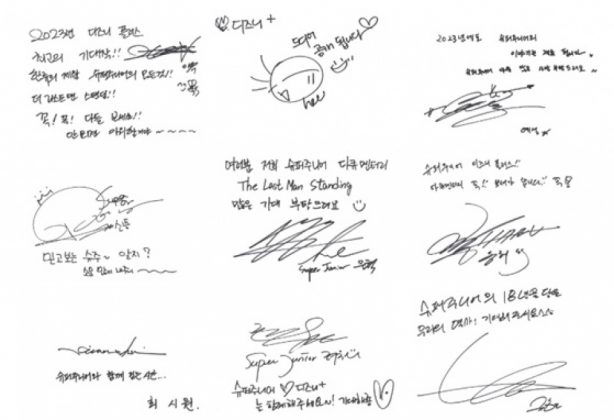 2023년 디즈니 플러스
최고의 기대작!!
슈퍼주니어의 모든것!!
더 라스트맨 스탠딩!!
꼭! 꼭! 다들 보세요!!
안보면
♡디즈니+
드디어
공개 됩니다♡
hee
2023년에도 슈퍼주니어의
이야기는 계속 됩니다
슈퍼주니어 많은 사랑 부탁드려요
예성
신동
믿고보는 슈주~ 알지?
여러분 저희 슈퍼주니어 다큐멘터리
The Last Man Standing
많은 기대 부탁드려요
Super Junior 은혁
슈퍼주니어 디즈니 플러스!!
꼭!
동해
슈퍼주니어와 함께
최시원.
Super Junior 려욱
슈퍼주니어♡디즈니+
함께해주세요~!
슈퍼주니어의 18년을 담은
우리의 역사! 기대해주세요
규현